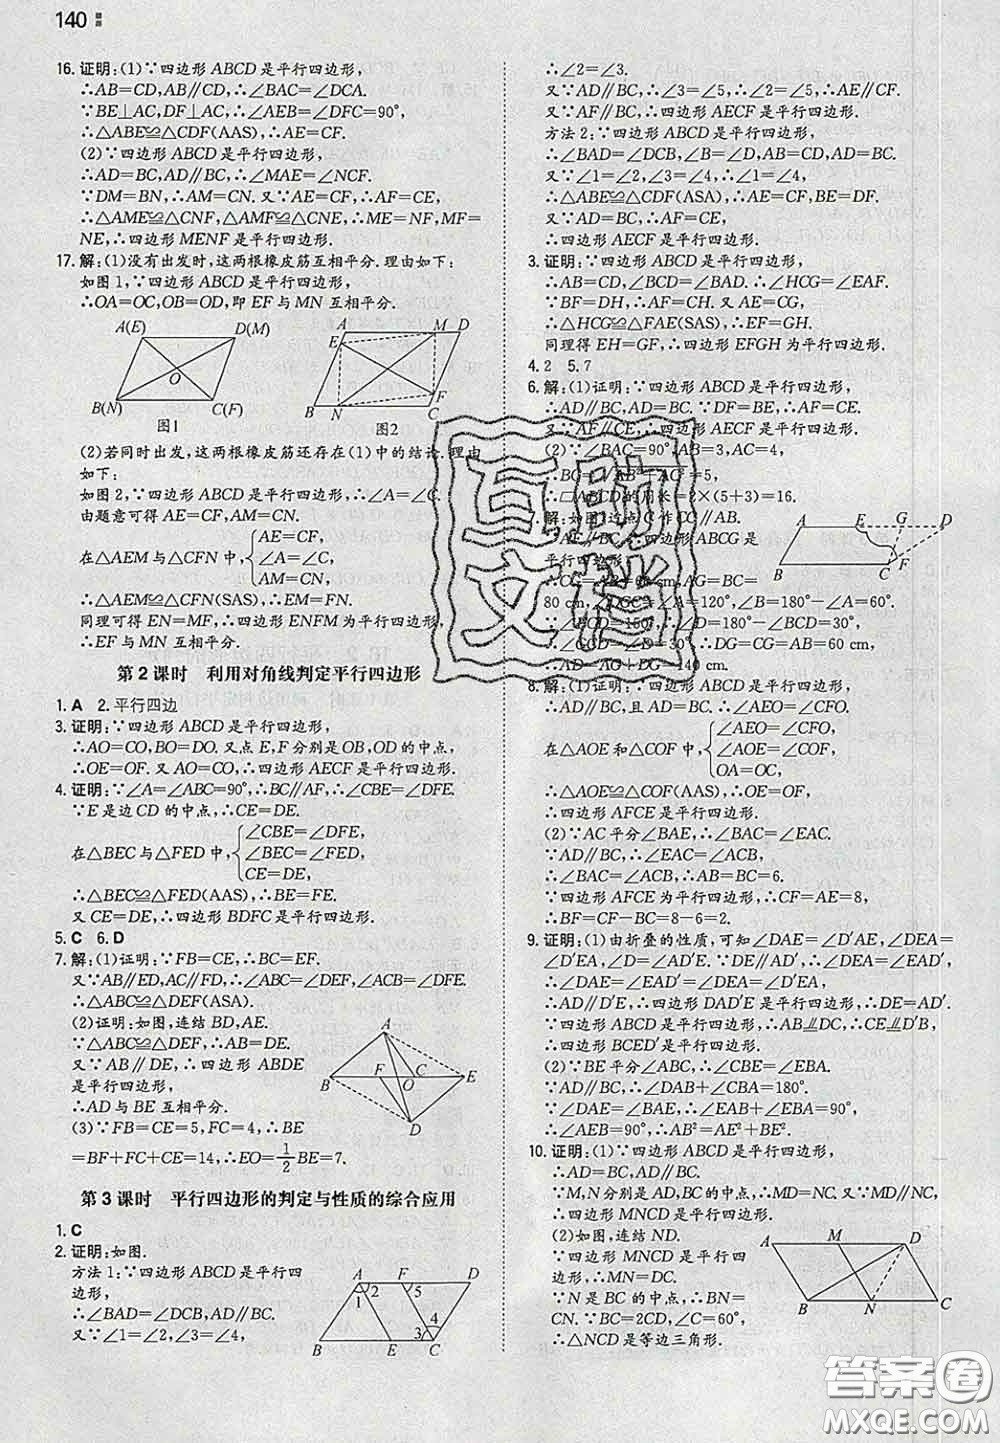 140
16. 证明:(1)∵四边形 ABCD 是平行四边形,
∴AB=CD,AB∥CD,∴∠BAC=∠DCA.
∵BE⊥AC,DF⊥AC,∴∠AEB=∠DFC=90°,
∴△ABE≌△CDF(AAS),∴AE=CF.
(2)∵四边形 ABCD 是平行四边形,
∴AD=BC,AD∥BC,∴∠MAE=∠NCF.
∵DM=BN,∴AM=CN. ∵AE=CF,∴AF=CE,
∴△AME≌△CNF,△AMF≌△CNE,∴ME=NF,MF=
NE,∴四边形 MENF 是平行四边形.
17. 解:(1)没有出发时,这两根橡皮筋互相平分.理由如下:
如图 1,∵四边形 ABCD 是平行四边形,
∴OA=OC,OB=OD,即 EF 与 MN 互相平分.
A(E) D(M) O B(N) C(F)
图1
A M D E F B N C
图2
(2)若同时出发,这两根橡皮筋还存在(1)中的结论.理由
如下:
如图 2,∵四边形 ABCD 是平行四边形,∴∠A=∠C.
由题意可得 AE=CF,AM=CN.
在△AEM 与△CFN 中,
AE=CF,
∠A=∠C,
AM=CN,
∴△AEM≌△CFN(SAS),∴EM=FN.
同理可得 EN=MF,∴四边形 ENFM 是平行四边形,
∴EF 与 MN 互相平分.
第 2 课时 利用对角线判定平行四边形
1. A 2. 平行四边
3. 证明:∵四边形 ABCD 是平行四边形,
∴AO=CO,BO=DO. 又点 E,F 分别是 OB,OD 的中点,
∴OE=OF. 又 AO=CO,∴四边形 AECF 是平行四边形.
4. 证明:∵∠A=∠ABC=90°,∴BC∥AF,∴∠CBE=∠DFE.
∵E 是边 CD 的中点,∴CE=DE.
在△BEC 与△FED 中,
∠CBE=∠DFE,
∠BEC=∠FED,
CE=DE,
∴△BEC≌△FED(AAS),∴BE=FE.
又 CE=DE,∴四边形 BDFC 是平行四边形.
5. C 6. D
7. 解:(1)证明:∵FB=CE,∴BC=EF.
又∵AB∥ED,AC∥FD,∴∠ABC=∠DEF,∠ACB=∠DFE,
∴△ABC≌△DEF(ASA).
(2)证明:如图,连结 BD,AE.
∵△ABC≌△DEF,∴AB=DE.
又∵AB∥DE,∴四边形 ABDE
是平行四边形,
∴AD 与 BE 互相平分.
(3)∵FB=CE=5,FC=4,∴BE
=BF+FC+CE=14,∴EO=1/2BE=7.
A B F O C E D
第 3 课时 平行四边形的判定与性质的综合应用
1. C
2. 证明:如图.
方法 1:∵四边形 ABCD 是平行四
边形,
∴∠BAD=∠DCB,AD∥BC.
又∵∠1=∠2,∠3=∠4,
A F D 2 5 1 4 3 B E C
∴∠2=∠3.
又∵AD∥BC,∴∠3=∠5,∴∠2=∠5,∴AE∥CF.
又∵AF∥BC,∴四边形 AECF 是平行四边形.
方法 2:∵四边形 ABCD 是平行四边形,
∴∠BAD=∠DCB,∠B=∠D,AB=CD,AD=BC.
又∵∠1=∠2,∠3=∠4,∴∠1=∠4,
∴△ABE≌△CDF(ASA),∴AE=CF,BE=DF.
又∵AD=BC,∴AF=CE,
∴四边形 AECF 是平行四边形.
3. 证明:∵四边形 ABCD 是平行四边形,
∴AB=CD,∠BCD=∠BAD. ∴∠HCG=∠EAF.
∵BF=DH,∴AF=CH. 又∵AE=CG,
∴△HCG≌△FAE(SAS),∴EF=GH.
同理得 EH=GF,∴四边形 EFGH 为平行四边形.
4. 2 5. 7
6. 解:(1)证明:∵四边形 ABCD 是平行四边形,
∴AD∥BC,AD=BC. ∵DF=BE,∴AF=CE.
又∵AF∥CE,∴四边形 AECF 是平行四边形.
(2)∵∠BAC=90°,AB=3,AC=4,
∴BC=√AB²+AC²=5,
∴□ABCD 的周长=2×(5+3)=16.
7. 解:如图,过点 C 作 CG∥AB.
∵AE∥BC,∴四边形 ABCG 是
平行四边形,
∴CG=AB=60 cm,AG=BC=
80 cm,∠DGC=∠A=120°,∠B=180°-∠A=60°.
∵∠BCD=150°,∴∠D=180°-∠BCD=30°,
∴∠GCD=180°-∠DGC-∠D=30°,∴DG=CG=60 cm,
∴AD=AG+DG=140 cm.
A E G D B C F
8. 解:(1)证明:∵四边形 ABCD 是平行四边形,
∴AD∥BC,且 AD=BC. ∴∠AEO=∠CFO.
在△AOE 和△COF 中,
∠AEO=∠CFO,
∠AOE=∠COF,
OA=OC,
∴△AOE≌△COF(AAS),∴OE=OF,
∴四边形 AFCE 是平行四边形.
(2)∵AC 平分∠BAE,∴∠BAC=∠EAC.
∵AD∥BC,∴∠EAC=∠ACB,
∴∠BAC=∠ACB,∴AB=BC=6.
∵四边形 AFCE 为平行四边形,∴CF=AE=8,
∴BF=CF-BC=8-6=2.
9. 证明:(1)由折叠的性质,可知∠DAE=∠D′AE,∠DEA=
∠D′EA,AD=AD′. ∵DE∥AD′,∴∠DEA=∠EAD′,
∴∠DAE=∠EAD′=∠DEA=∠D′EA,
∴AD∥D′E,∴四边形 DAD′E 是平行四边形,∴DE=AD′.
∵四边形 ABCD 是平行四边形,∴AB∥DC,∴CE∥D′B,
∴四边形 BCED′是平行四边形.
(2)∵BE 平分∠ABC,∴∠CBE=∠EBA.
∵AD∥BC,∴∠DAB+∠CBA=180°.
∵∠DAE=∠BAE,∴∠EAB+∠EBA=90°,
∴∠AEB=90°,∴AB²=AE²+BE².
10. 证明:(1)∵四边形 ABCD 是平行四边形,
∴AD=BC,AD∥BC.
∵M,N 分别是 AD,BC 的中点,∴MD=NC. 又∵MD∥NC,
∴四边形 MNCD 是平行四边形.
(2)如图,连结 ND.
∵四边形 MNCD 是平行四
边形,∴MN=DC.
∵N 是 BC 的中点,∴BN=
CN. ∵BC=2CD,∠C=60°,
∴△NCD 是等边三角形.
A M D B N C
互助文档
答案圈
MXQE.COM